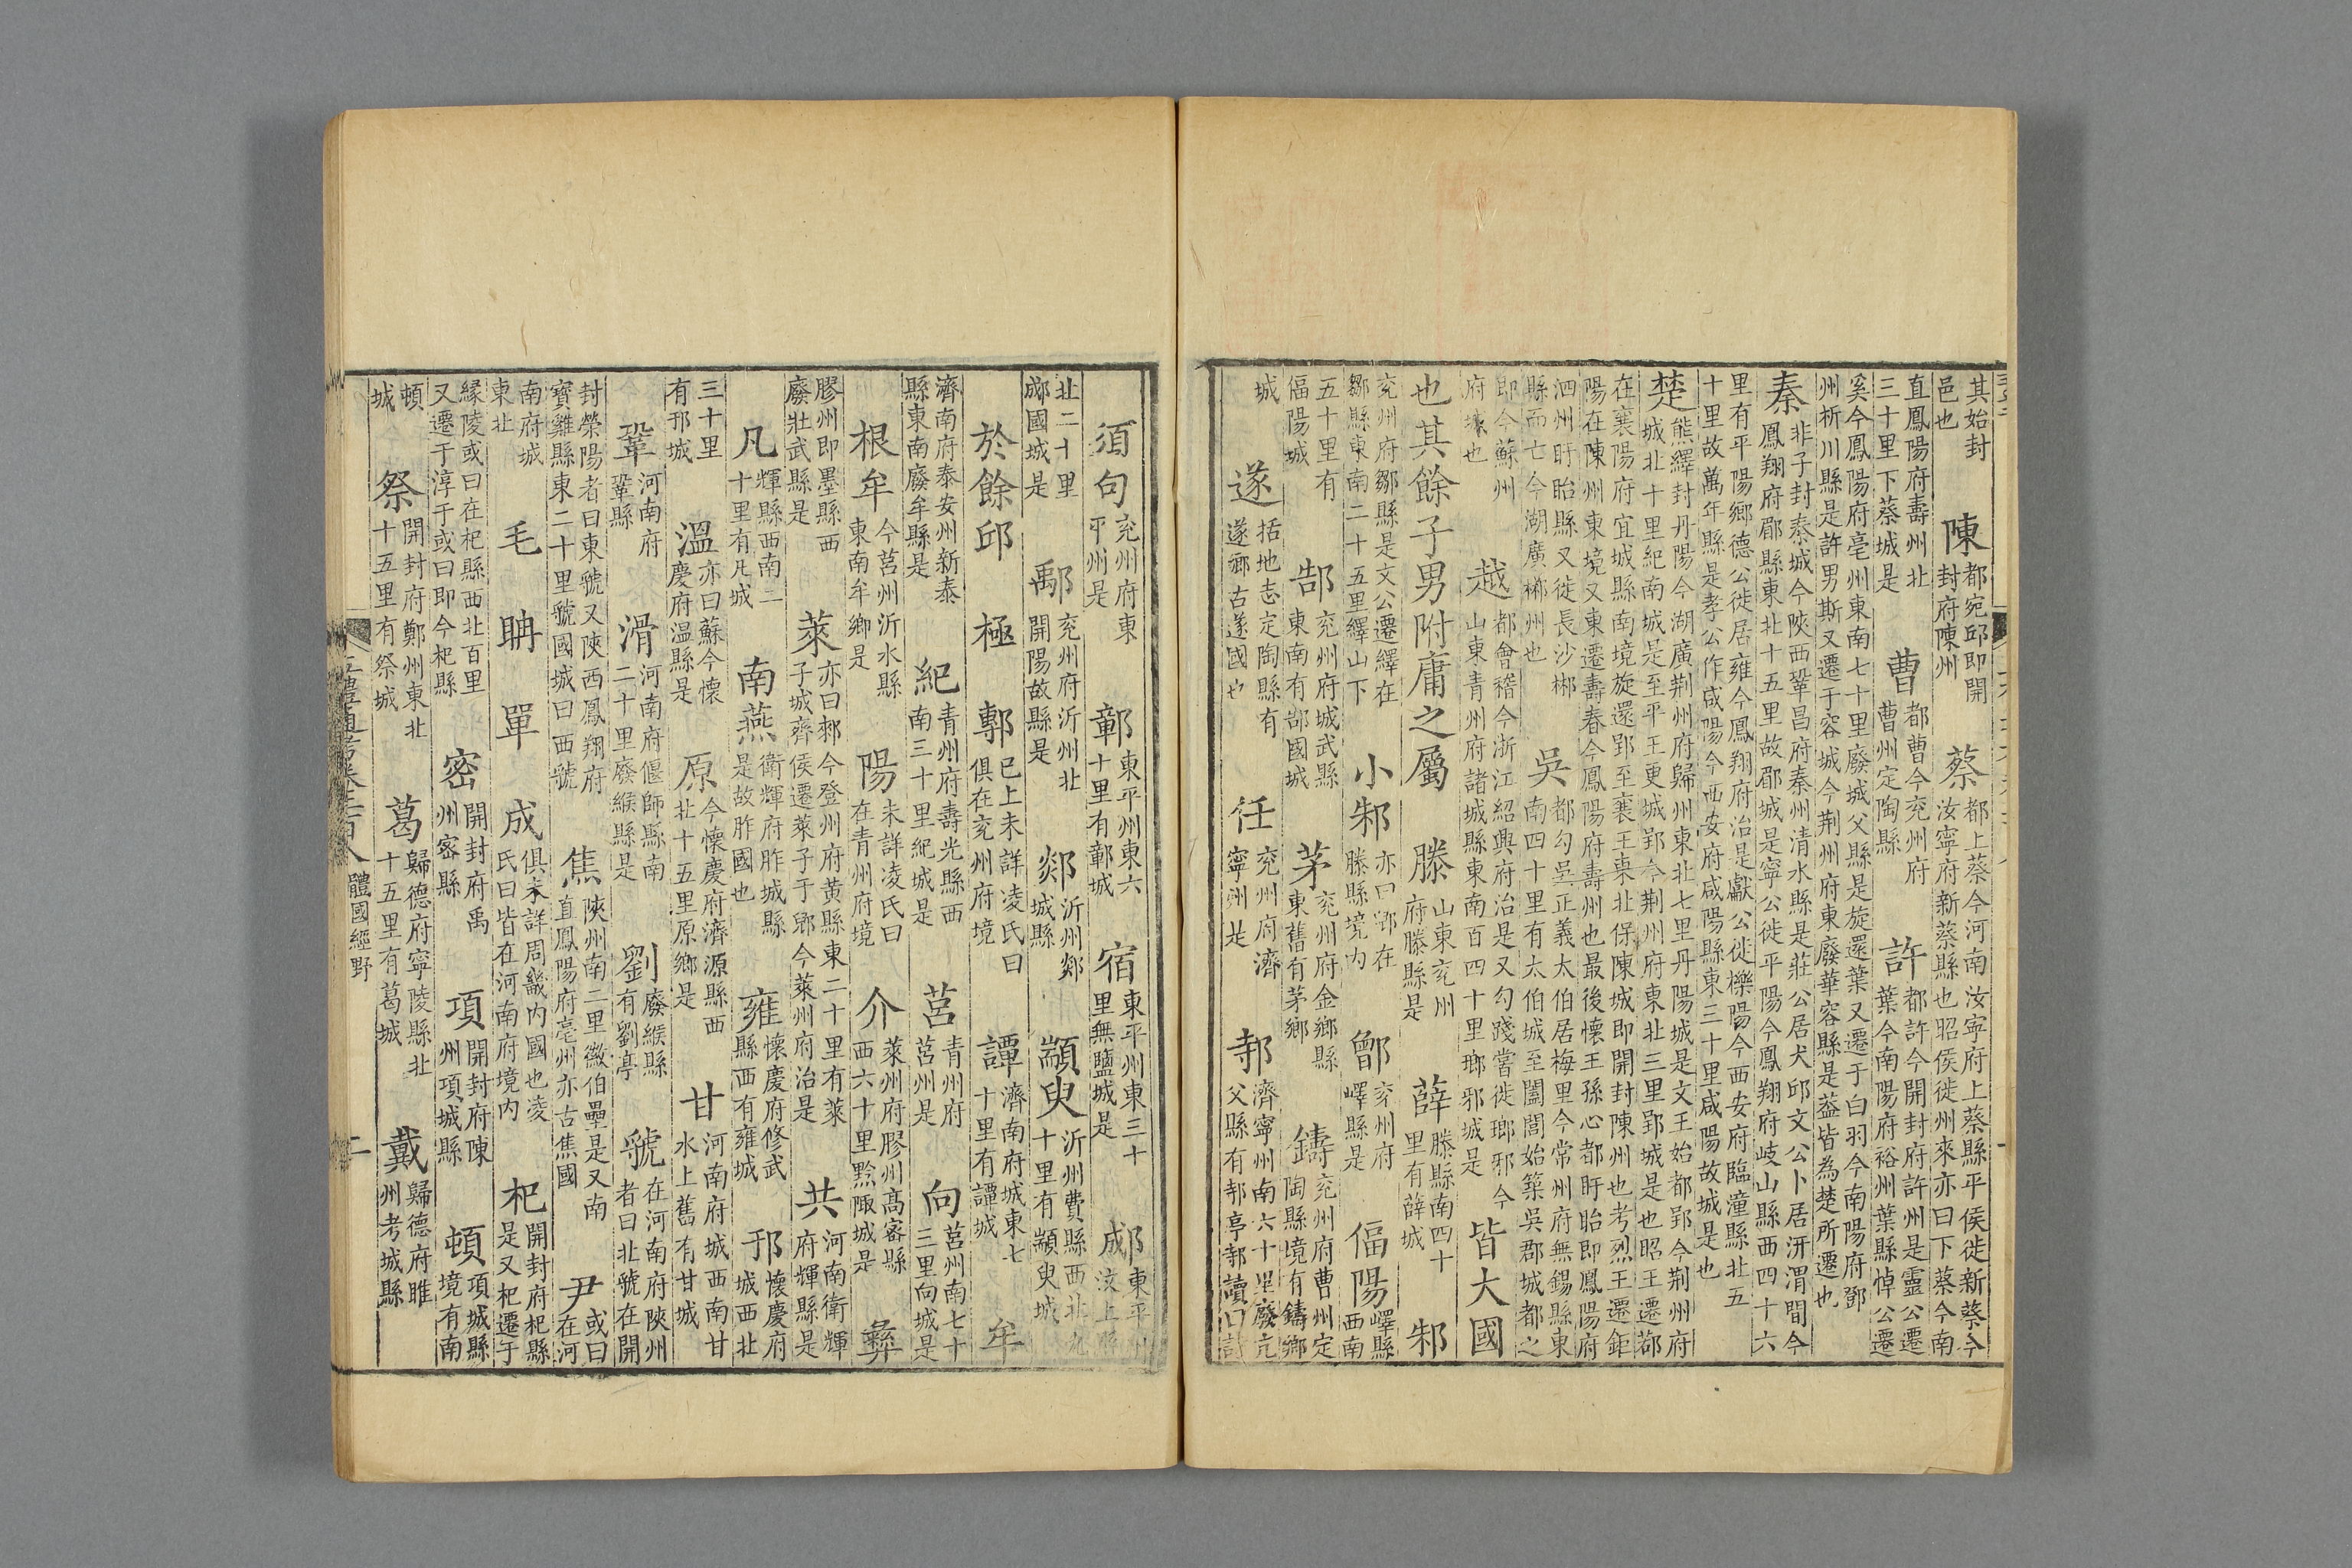 其始封邑也陳都宛邱即開封府陳州蔡都上蔡今河南汝寧府上蔡縣平侯徙新蔡今汝寧府新蔡縣也昭侯徙州來亦曰下蔡今南
直鳳陽府壽州北三十里下蔡城是曹都曹今兖州府曹州定陶縣許都許今開封府許州是靈公遷葉今南陽府裕州葉縣悼公遷
奚今鳳陽府亳州東南七十里廢城父縣是旋還葉又遷于白羽今南陽府鄧州析川縣是許男斯又遷于容城今荆州府東廢華容縣是葢皆為楚所遷也
秦非子封秦城今陜西鞏昌府秦州清水縣是莊公居犬邱文公卜居汧渭間今鳳翔府郿縣東北十五里故郿城是寧公徙平陽今鳳翔府岐山縣西四十六
里有平陽鄉德公徙居雍今鳳翔府治是獻公徙櫟陽今西安府臨潼縣北五十里故萬年縣是孝公作咸陽今西安府咸陽縣東三十里咸陽故城是也
楚熊繹封丹陽今湖廣荆州府歸州東北七里丹陽城是文王始都郢今荆州府城北十里紀南城是至平王更城郢今荆州府東北三里郢城是也昭王遷鄀
在襄陽府宜城縣南境旋還郢至襄王東北保陳城即開封陳州也考烈王遷鉅陽在陳州東境又東遷壽春今鳳陽府壽州也最後懷王孫心都盱眙即鳳陽府
泗州盱眙縣又徙長沙郴縣而亡今湖廣郴州也吳都勾吳正義太伯居梅里今常州府無錫縣東南四十里有太伯城至闔閭始築吳郡城都之
即今蘇州府城也越都會稽今浙江紹興府治是又勾踐嘗徙瑯邪今山東青州府諸城縣東南百四十里瑯邪城是皆大國
也其餘子男附庸之屬滕山東兖州府滕縣是薛滕縣南四十里有薛城邾
兖州府鄒縣是文公遷繹在鄒縣東南二十五里繹山下小邾亦曰郳在滕縣境内鄫兖州府嶧縣是偪陽嶧縣西南
五十里有偪陽城郜兖州府城武縣東南有郜國城茅兖州府金鄉縣東舊有茅鄉鑄兖州府曹州定陶縣境有鑄鄉
城遂括地志定陶縣有遂鄉古遂國也任兖州府濟寧州是邿濟寧州南六十里廢亢父縣有邿亭邿讀曰詩
須句兖州府東平州是鄣東平州東六十里有鄣城宿東平州東三十里無鹽城是郕東平州汶上縣
北二十里郕國城是鄅兖州府沂州北開陽故縣是郯沂州郯城縣顓臾沂州費縣西北九十里有顓臾城
於餘邱極鄟已上未詳凌氏曰俱在兖州府境譚濟南府城東七十里有譚城牟
濟南府泰安州新泰縣東南廢牟縣是紀青州府壽光縣西南三十里紀城是莒青州府莒州是向莒州南七十三里向城是
根牟今莒州沂水縣東南牟鄉是陽未詳凌氏曰在青州府境介萊州府膠州高密縣西六十里黔陬城是彝
膠州即墨縣西廢壯武縣是萊亦曰郲今登州府黄縣東二十里有萊子城齊侯遷萊子于郳今萊州府治是共河南衛輝府輝縣是
凡輝縣西南二十里有凡城南燕衛輝府胙城縣是故胙國也雍懷慶府修武縣西有雍城邘懷慶府城西北
三十里有邘城溫亦曰蘇今懷慶府温縣是原今懷慶府濟源縣西北十五里原鄉是甘河南府城西南甘水上舊有甘城
鞏河南府鞏縣滑河南府偃師縣南二十里廢緱縣是劉廢緱縣有劉亭虢在河南府陝州者曰北虢在開
封榮陽者曰東虢又陜西鳳翔府寶雞縣東二十里虢國城曰西虢焦陝州南二里徽伯壘是又南直鳳陽府亳州亦古焦國尹或曰在河
南府城東北毛聃單成俱未詳周畿内國也凌氏曰皆在河南府境内杞開封府杞縣是又杞遷于
緣陵或曰在杞縣西北百里又遷于淳于或曰即今杞縣密開封府禹州密縣項開封府陳州項城縣頓項城縣境有南
頓城祭開封府鄭州東北十五里有祭城葛歸德府寧陵縣北十五里有葛城戴歸德府睢州考城縣
體國經野